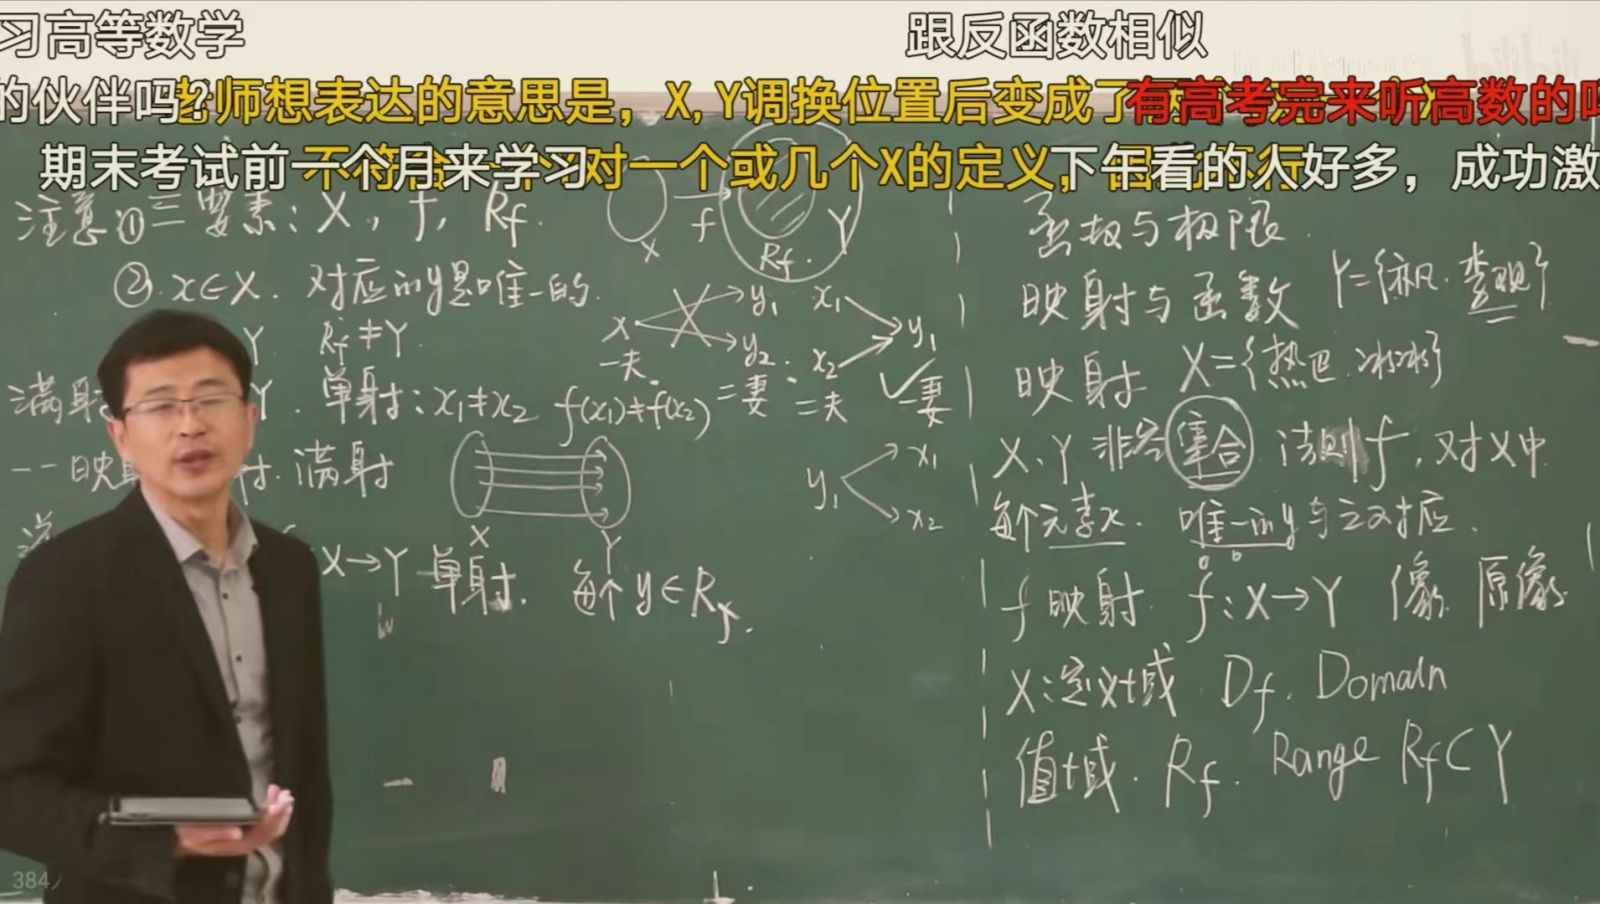 习高等数学
跟反函数相似
的伙伴吗?
老师想表达的意思是，X,Y调换位置后变成了
有高考完来听高数的吗
期末考试前一个月来学习
不符合
对一个或几个X的定义，
下午看的人好多，成功激
注意①三要素：X，f，Rf．
f
X
Rf．
Y
②．x∈X．对应的y是唯一的．
Y Rf≠Y．
x
y₁
y₂
一夫．
二妻．
x₁
x₂
y₁
二夫
一妻
满射
Y．单射：x₁≠x₂ f(x₁)≠f(x₂)
一一映射
满射
X
Y
y₁
x₁
x₂
X→Y 单射． 每个y∈Rf．
函数与极限．
映射与函数
映射 X={热巴．冰冰}
X、Y 非空集合 法则f，对X中
每个元素x． 唯一的y与之对应．
f映射． f：X→Y 像 原像
X：定义域． Df．Domain
值域． Rf． Range Rf⊂Y
384